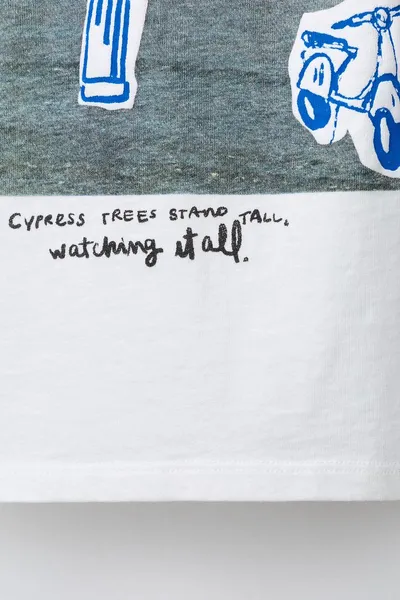 CYPRESS TREES STAND TALL.
watching it all.